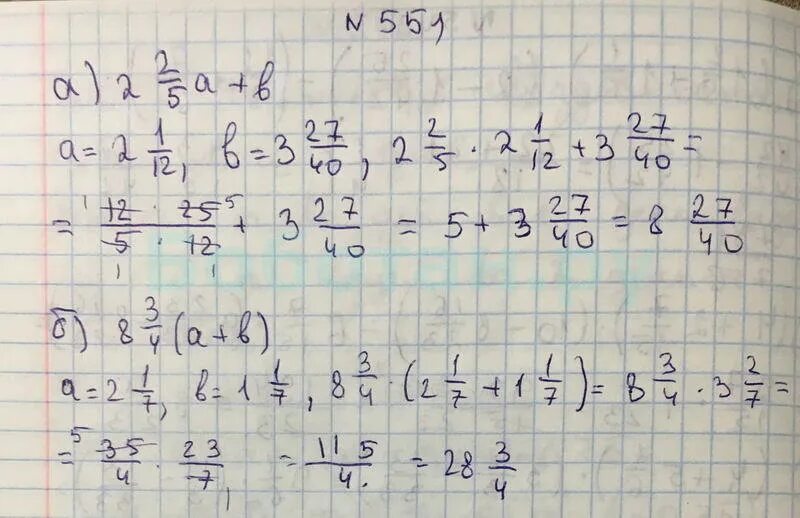 № 551
а) 2 2/5 a + b
a = 2 1/12, b = 3 27/40, 2 2/5 · 2 1/12 + 3 27/40 =
= (12 · 25)/(5 · 12) + 3 27/40 = 5 + 3 27/40 = 8 27/40
б) 8 3/4 (a + b)
a = 2 1/7, b = 1 1/7, 8 3/4 · (2 1/7 + 1 1/7) = 8 3/4 · 3 2/7 =
= 35/4 · 23/7 = 115/4 = 28 3/4